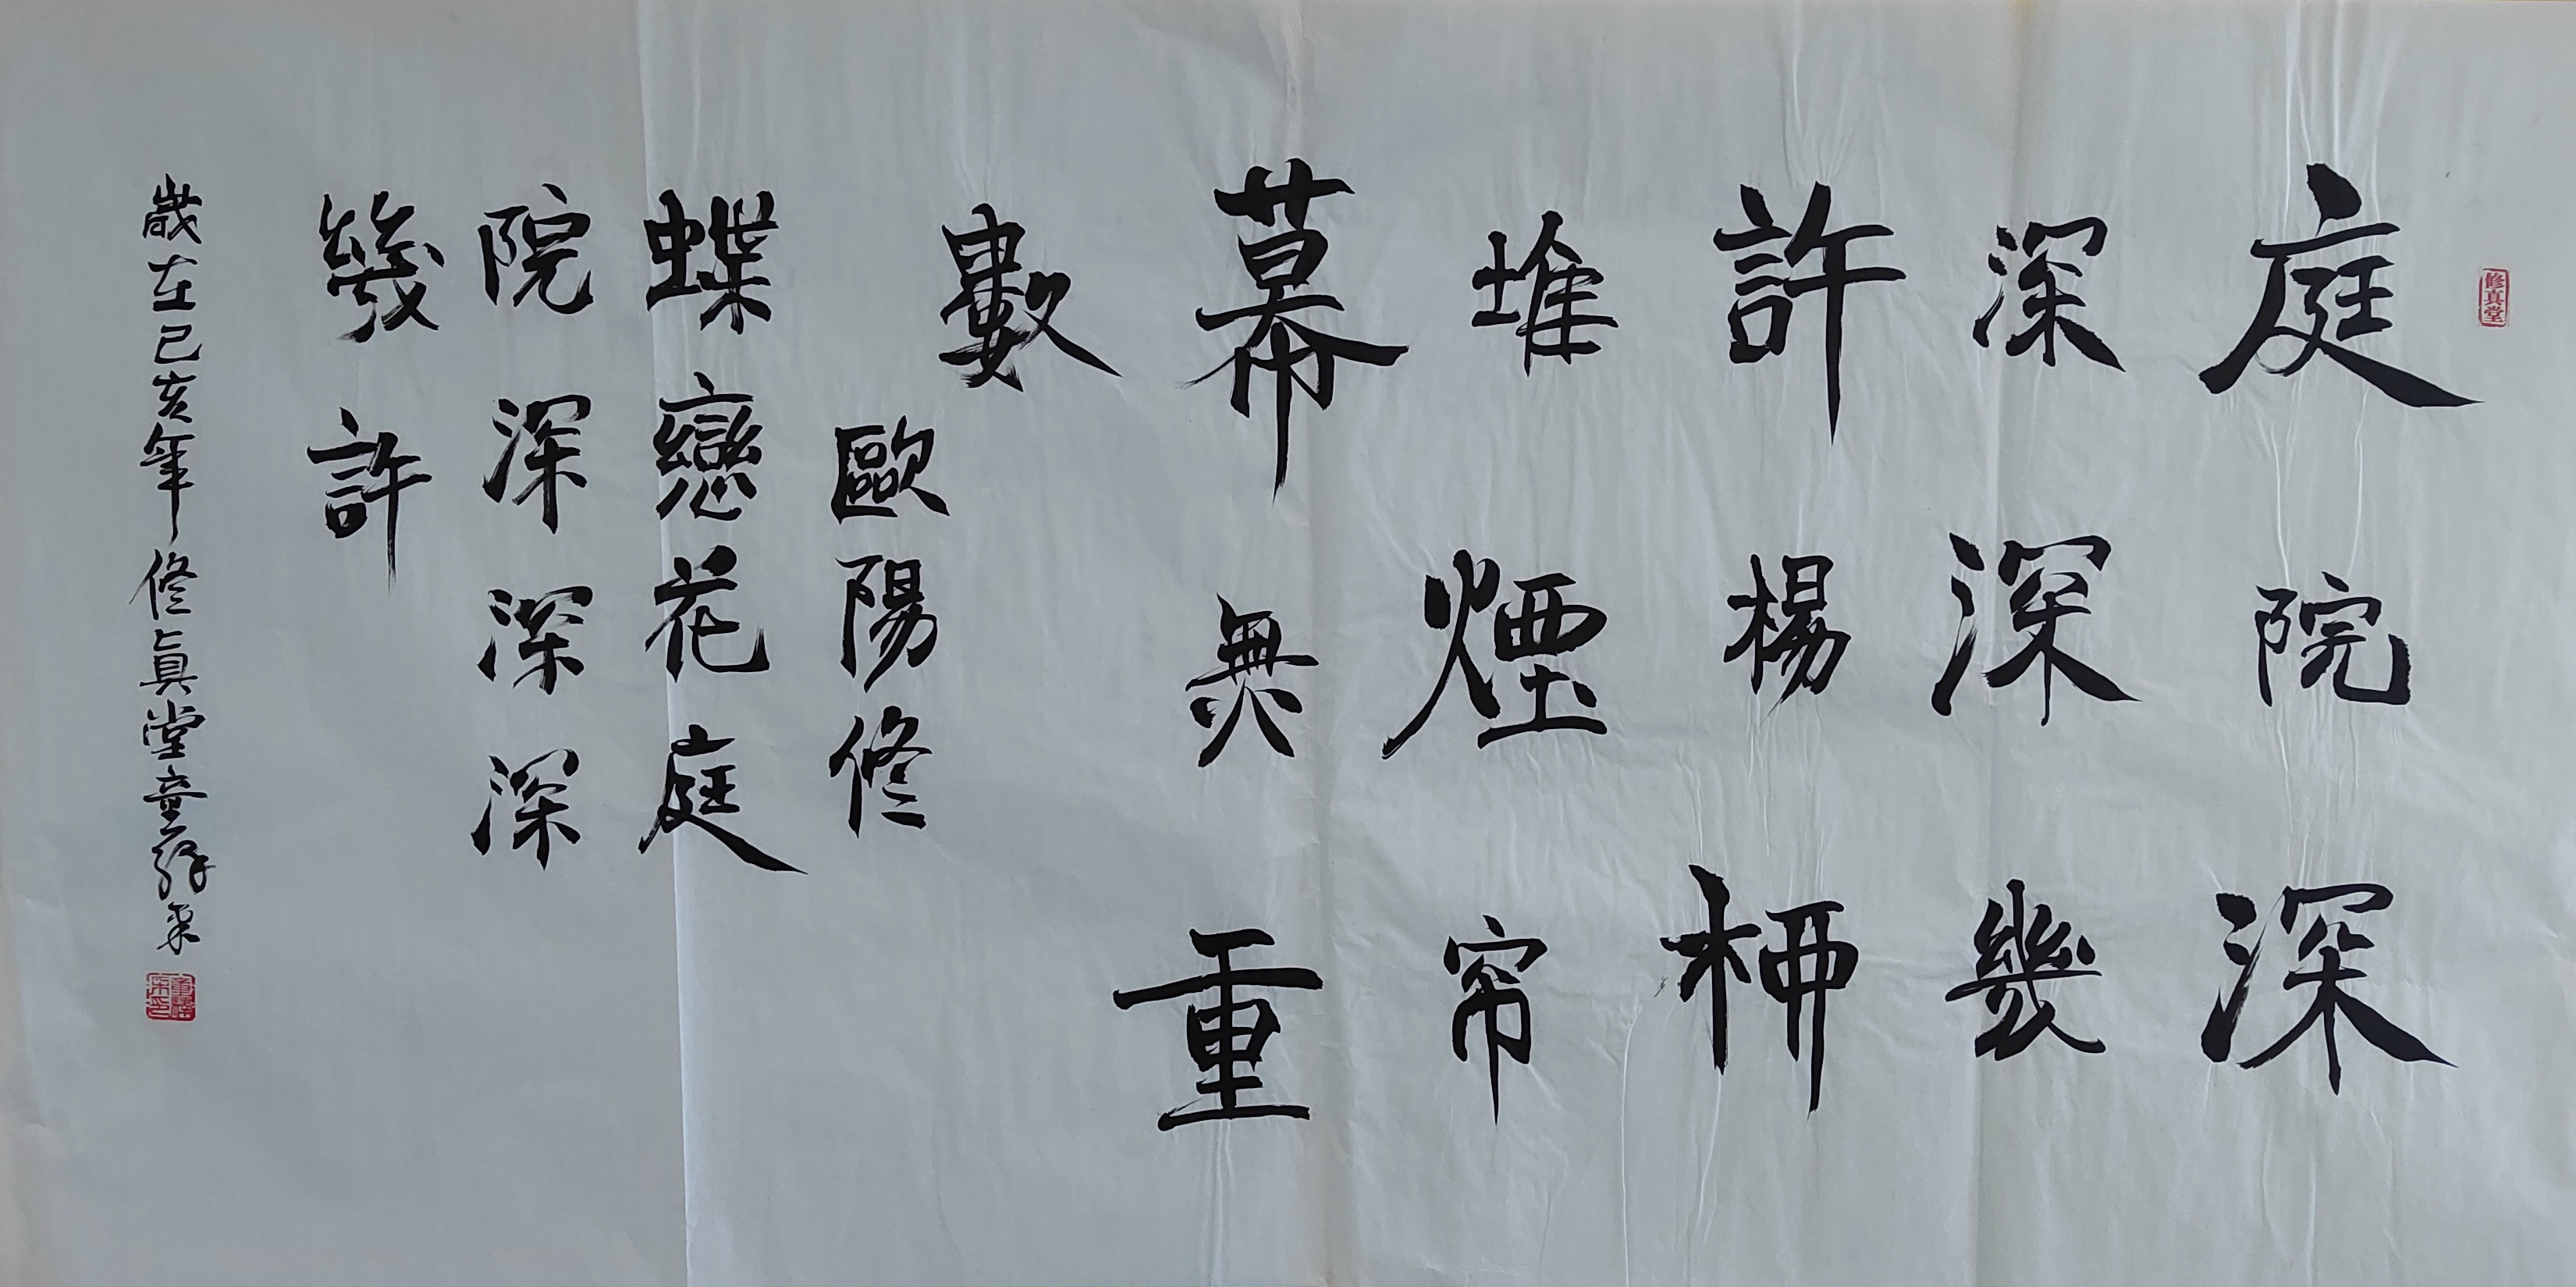 修真堂
庭院深
深深幾
許楊桺
堆煙帘
幕無重
數
歐陽修
蝶戀花庭
院深深深
幾許
歲在己亥年修真堂童